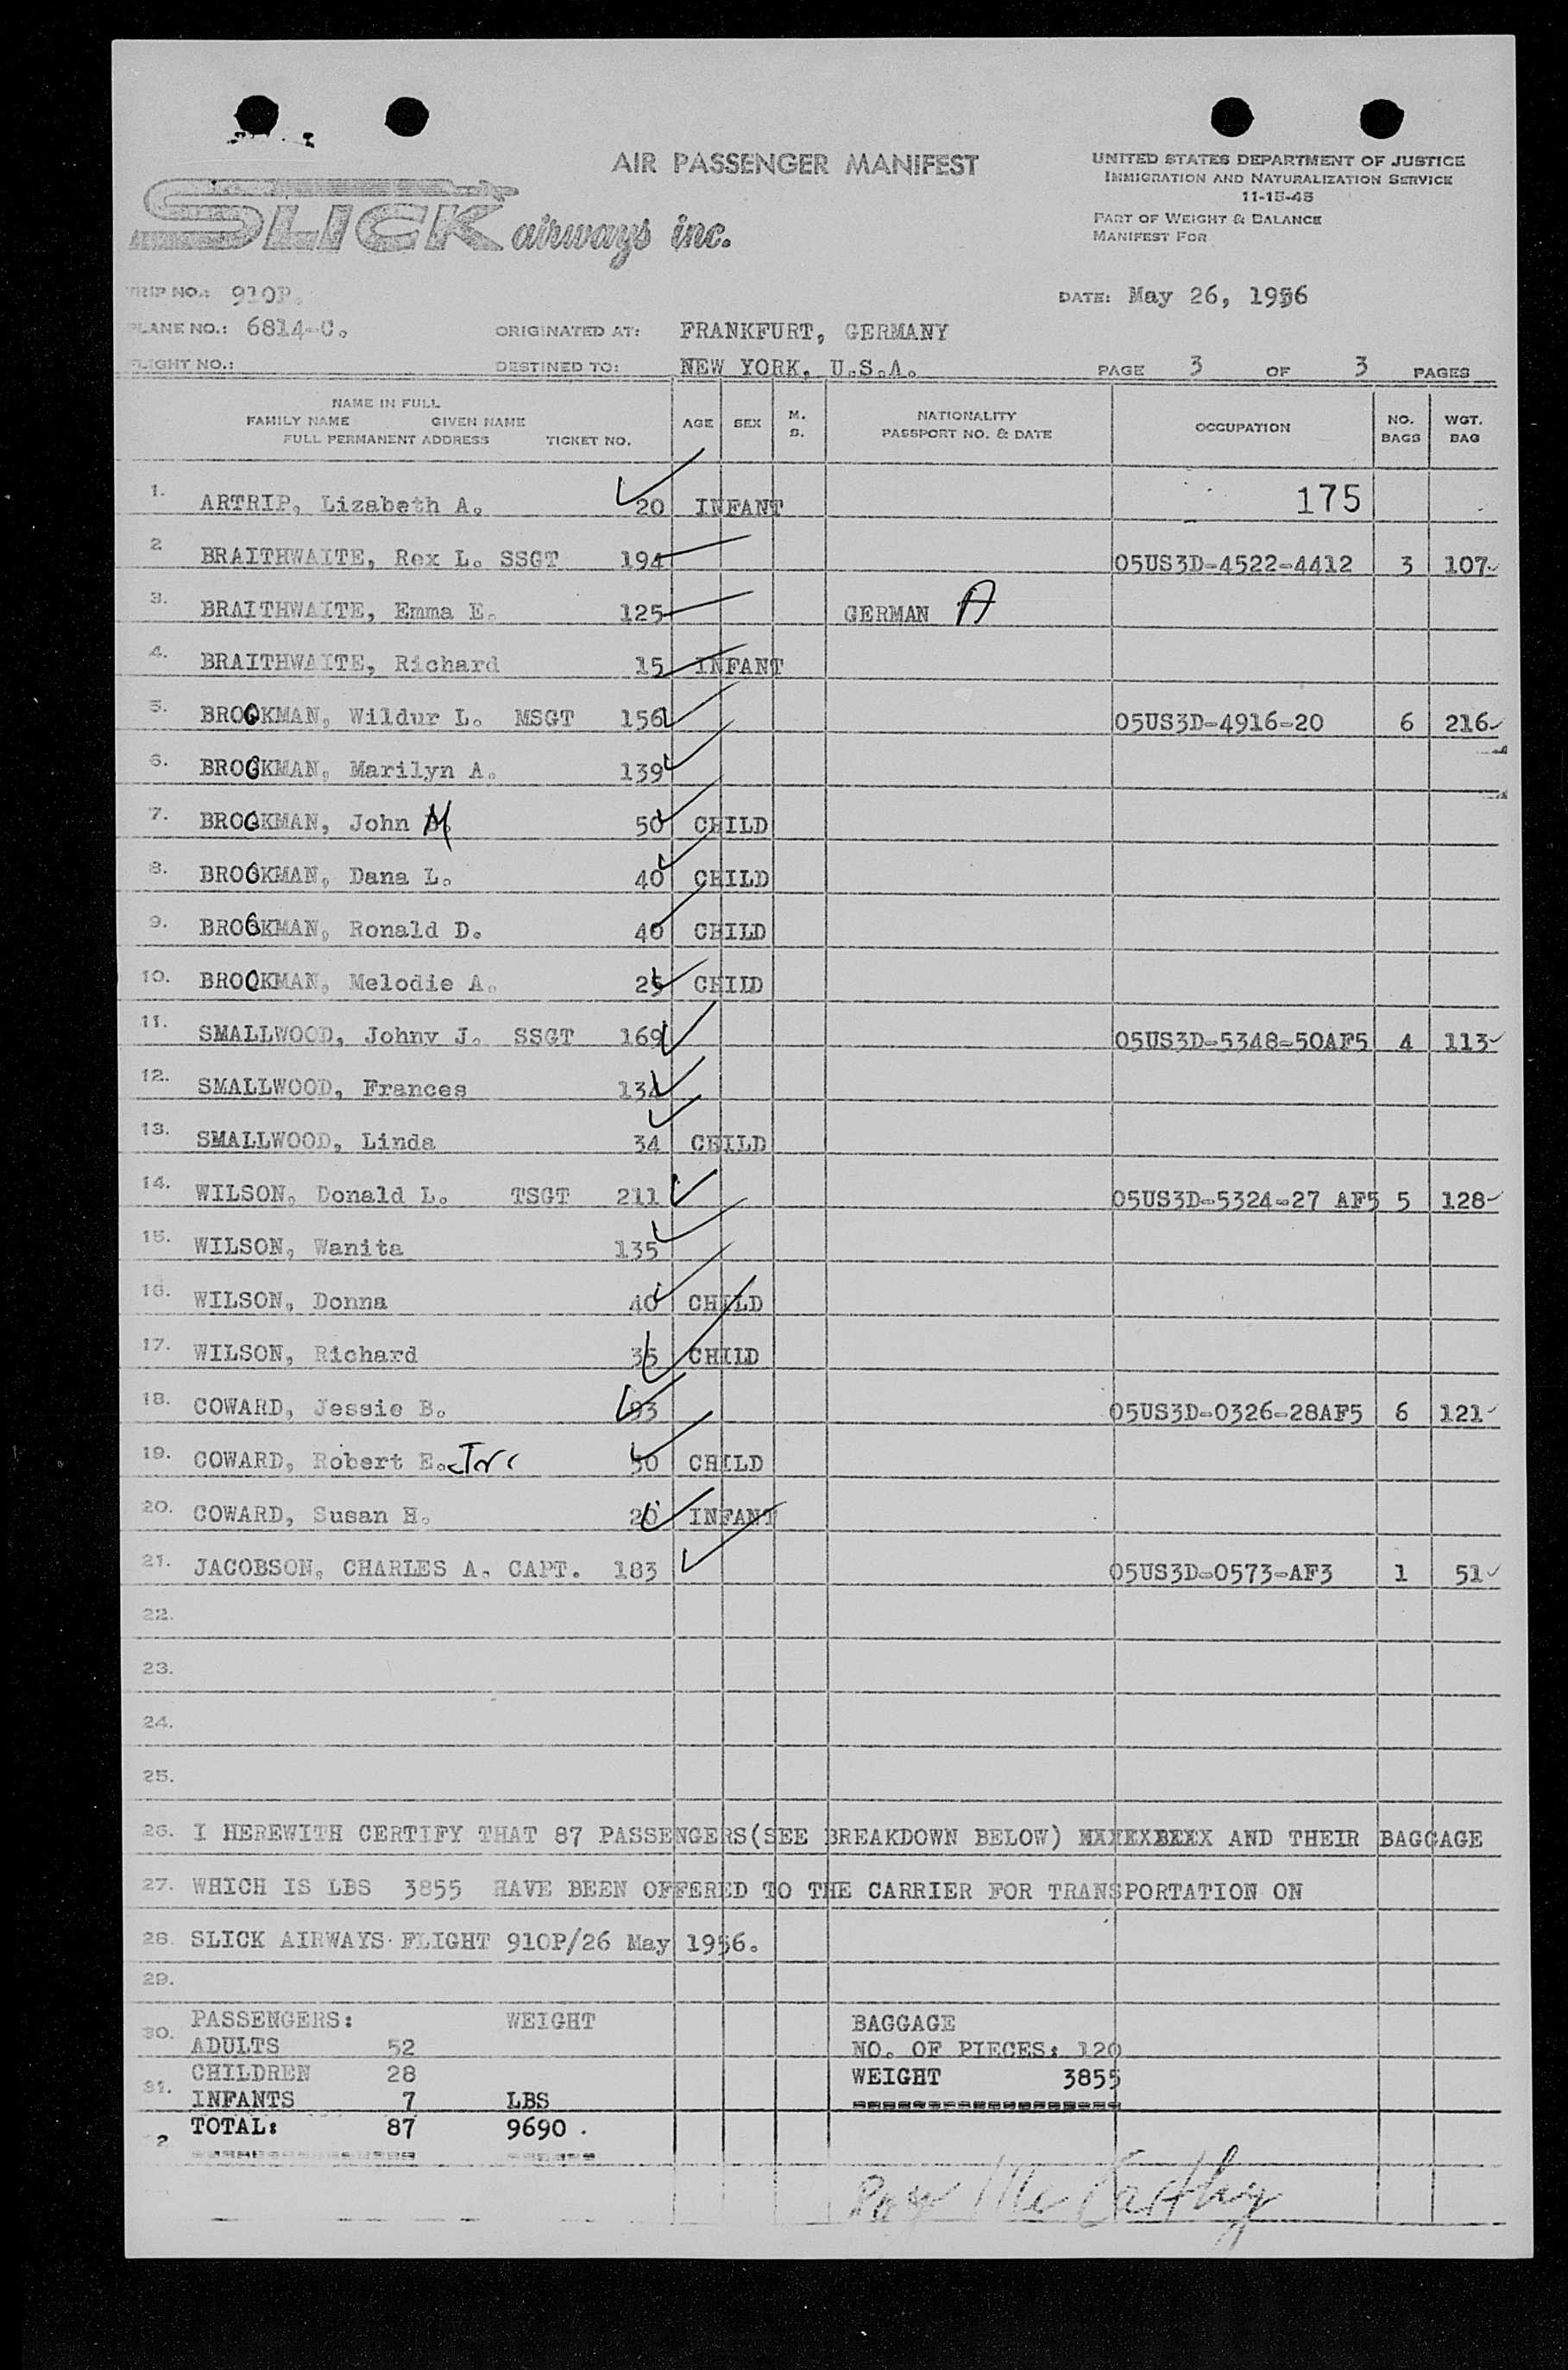 AIR PASSENGER MANIFEST
UNITED STATES DEPARTMENT OF JUSTICE
IMMIGRATION AND NATURALIZATION SERVICE
11-15-45
PART OF WEIGHT & BALANCE
MANIFEST FOR
SLICK airways inc.
TRIP NO.: 910P.
DATE: May 26, 1956
PLANE NO.: 6814-C.
ORIGINATED AT: FRANKFURT, GERMANY
FLIGHT NO.:
DESTINED TO: NEW YORK, U.S.A.
PAGE 3 OF 3 PAGES
NAME IN FULL
FAMILY NAME GIVEN NAME
FULL PERMANENT ADDRESS TICKET NO.
AGE SEX M. S.
NATIONALITY
PASSPORT NO. & DATE
OCCUPATION
NO. BAGS
WGT. BAG
1. ARTRIP, Lizabeth A. 20 INFANT 175
2 BRAITHWAITE, Rex L. SSGT 194 05US3D-4522-4412 3 107
3. BRAITHWAITE, Emma E. 125 GERMAN A
4. BRAITHWAITE, Richard 15 INFANT
5. BROCKMAN, Wildur L. MSGT 156 05US3D-4916-20 6 216
6. BROCKMAN, Marilyn A. 139
7. BROCKMAN, John M 50 CHILD
8. BROCKMAN, Dana L. 40 CHILD
9. BROCKMAN, Ronald D. 40 CHILD
10. BROCKMAN, Melodie A. 25 CHILD
11. SMALLWOOD, Johny J. SSGT 169 05US3D-5348-50AF5 4 113
12. SMALLWOOD, Frances 134
13. SMALLWOOD, Linda 34 CHILD
14. WILSON, Donald L. TSGT 211 05US3D-5324-27 AF5 5 128
15. WILSON, Wanita 135
16. WILSON, Donna 40 CHILD
17. WILSON, Richard 35 CHILD
18. COWARD, Jessie B. 93 05US3D-0326-28AF5 6 121
19. COWARD, Robert E. Jr 50 CHILD
20. COWARD, Susan H. 20 INFANT
21. JACOBSON, CHARLES A. CAPT. 183 05US3D-0573-AF3 1 51
22.
23.
24.
25.
26. I HEREWITH CERTIFY THAT 87 PASSENGERS(SEE BREAKDOWN BELOW) AND THEIR BAGGAGE
27. WHICH IS LBS 3855 HAVE BEEN OFFERED TO THE CARRIER FOR TRANSPORTATION ON
28. SLICK AIRWAYS FLIGHT 910P/26 May 1956.
29.
PASSENGERS: WEIGHT BAGGAGE
30. ADULTS 52 NO. OF PIECES: 120
CHILDREN 28 WEIGHT 3855
31. INFANTS 7 LBS
TOTAL: 87 9690
Roy McCarthy